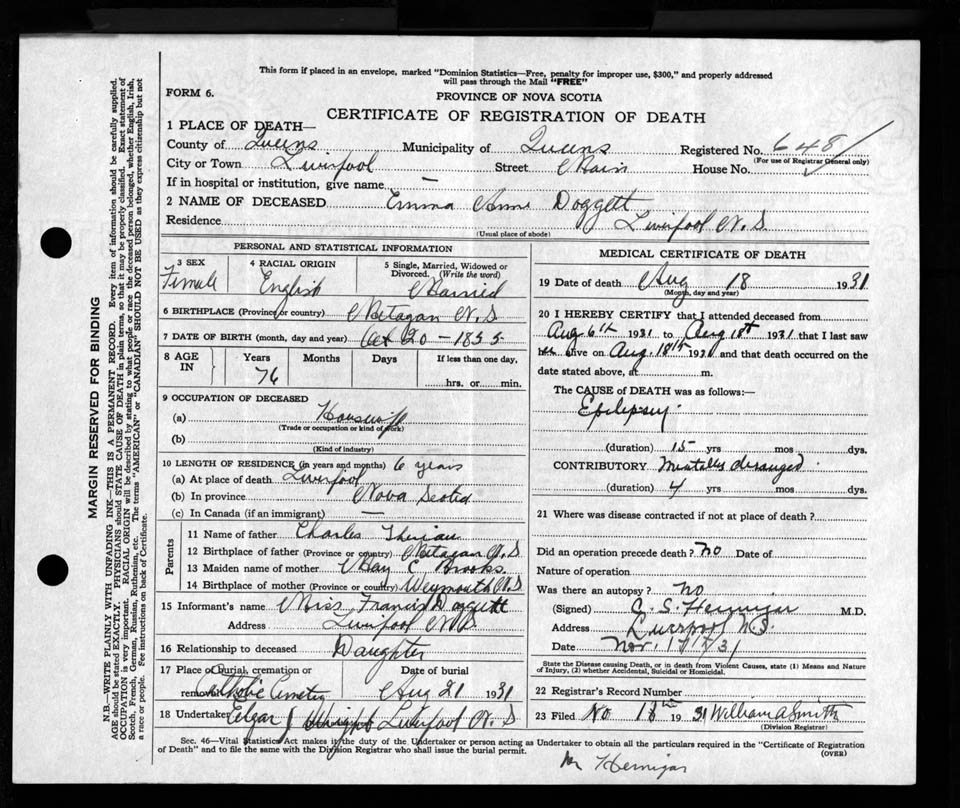 This form if placed in an envelope, marked "Dominion Statistics—Free, penalty for improper use, $300," and properly addressed
will pass through the Mail "FREE"
FORM 6.
PROVINCE OF NOVA SCOTIA
CERTIFICATE OF REGISTRATION OF DEATH
1 PLACE OF DEATH—
County of Queens Municipality of Queens Registered No. 648
(For use of Registrar General only)
City or Town Liverpool Street Main House No.
If in hospital or institution, give name —
2 NAME OF DECEASED Emma Anne Doggett
Residence Liverpool N. S.
(Usual place of abode)
PERSONAL AND STATISTICAL INFORMATION
3 SEX Female
4 RACIAL ORIGIN English
5 Single, Married, Widowed or Divorced. (Write the word) Married
6 BIRTHPLACE (Province or country) Mitagan N. S
7 DATE OF BIRTH (month, day and year) Oct 20 - 1855.
8 AGE IN Years 76 Months Days If less than one day, hrs. or min.
9 OCCUPATION OF DECEASED
(a) Housewife
(Trade or occupation or kind of work)
(b)
(Kind of industry)
10 LENGTH OF RESIDENCE (in years and months) 6 years
(a) At place of death Liverpool
(b) In province Nova Scotia
(c) In Canada (if an immigrant) —
Parents
11 Name of father Charles Theriau
12 Birthplace of father (Province or country) Mitagan N. S
13 Maiden name of mother May C Brooks.
14 Birthplace of mother (Province or country) Weymouth N. S
15 Informant's name Miss Francis Doggett
Address Liverpool N. S
16 Relationship to deceased Daughter
17 Place of Burial, cremation or removal Catholic Cemetery
Date of burial Aug 21 1931
18 Undertaker Elgar J Liverpool N. S
MEDICAL CERTIFICATE OF DEATH
19 Date of death Aug 18 1931
(Month, day and year)
20 I HEREBY CERTIFY that I attended deceased from
Aug 6th 1931 to Aug 18th 1931 that I last saw
her alive on Aug. 18th 1931 and that death occurred on the
date stated above, at m.
The CAUSE of DEATH was as follows:—
Epilepsy.
(duration) 15 yrs mos dys.
CONTRIBUTORY Mentally deranged.
(duration) 4 yrs mos dys.
21 Where was disease contracted if not at place of death?
Did an operation precede death? no Date of
Nature of operation
Was there an autopsy? no.
(Signed) C. S. Hennigar M.D.
Address Liverpool N.S.
Date Nov. 17/31
State the Disease causing Death, or in death from Violent Causes, state (1) Means and Nature
of Injury, (2) whether Accidental, Suicidal or Homicidal.
22 Registrar's Record Number
23 Filed No 18th 1931 William A Smith
(Division Registrar)
Sec. 46—Vital Statistics Act makes it the duty of the Undertaker or person acting as Undertaker to obtain all the particulars required in the "Certificate of Registration
of Death" and to file the same with the Division Registrar who shall issue the burial permit.
(OVER)
Dr Hennigar
MARGIN RESERVED FOR BINDING
N.B.—WRITE PLAINLY WITH UNFADING INK—THIS IS A PERMANENT RECORD. Every item of information should be carefully supplied.
AGE should be stated EXACTLY. PHYSICIANS should STATE CAUSE OF DEATH in plain terms, so that it may be properly classified. Exact statement of
OCCUPATION is very important. RACIAL ORIGIN will be described by stating to what people or race the deceased person belonged, whether English, Irish,
Scotch, French, German, Russian, Ruthenian, etc. The terms "AMERICAN" or "CANADIAN" SHOULD NOT BE USED as they express citizenship but not
a race or people. See instructions on back of Certificate.